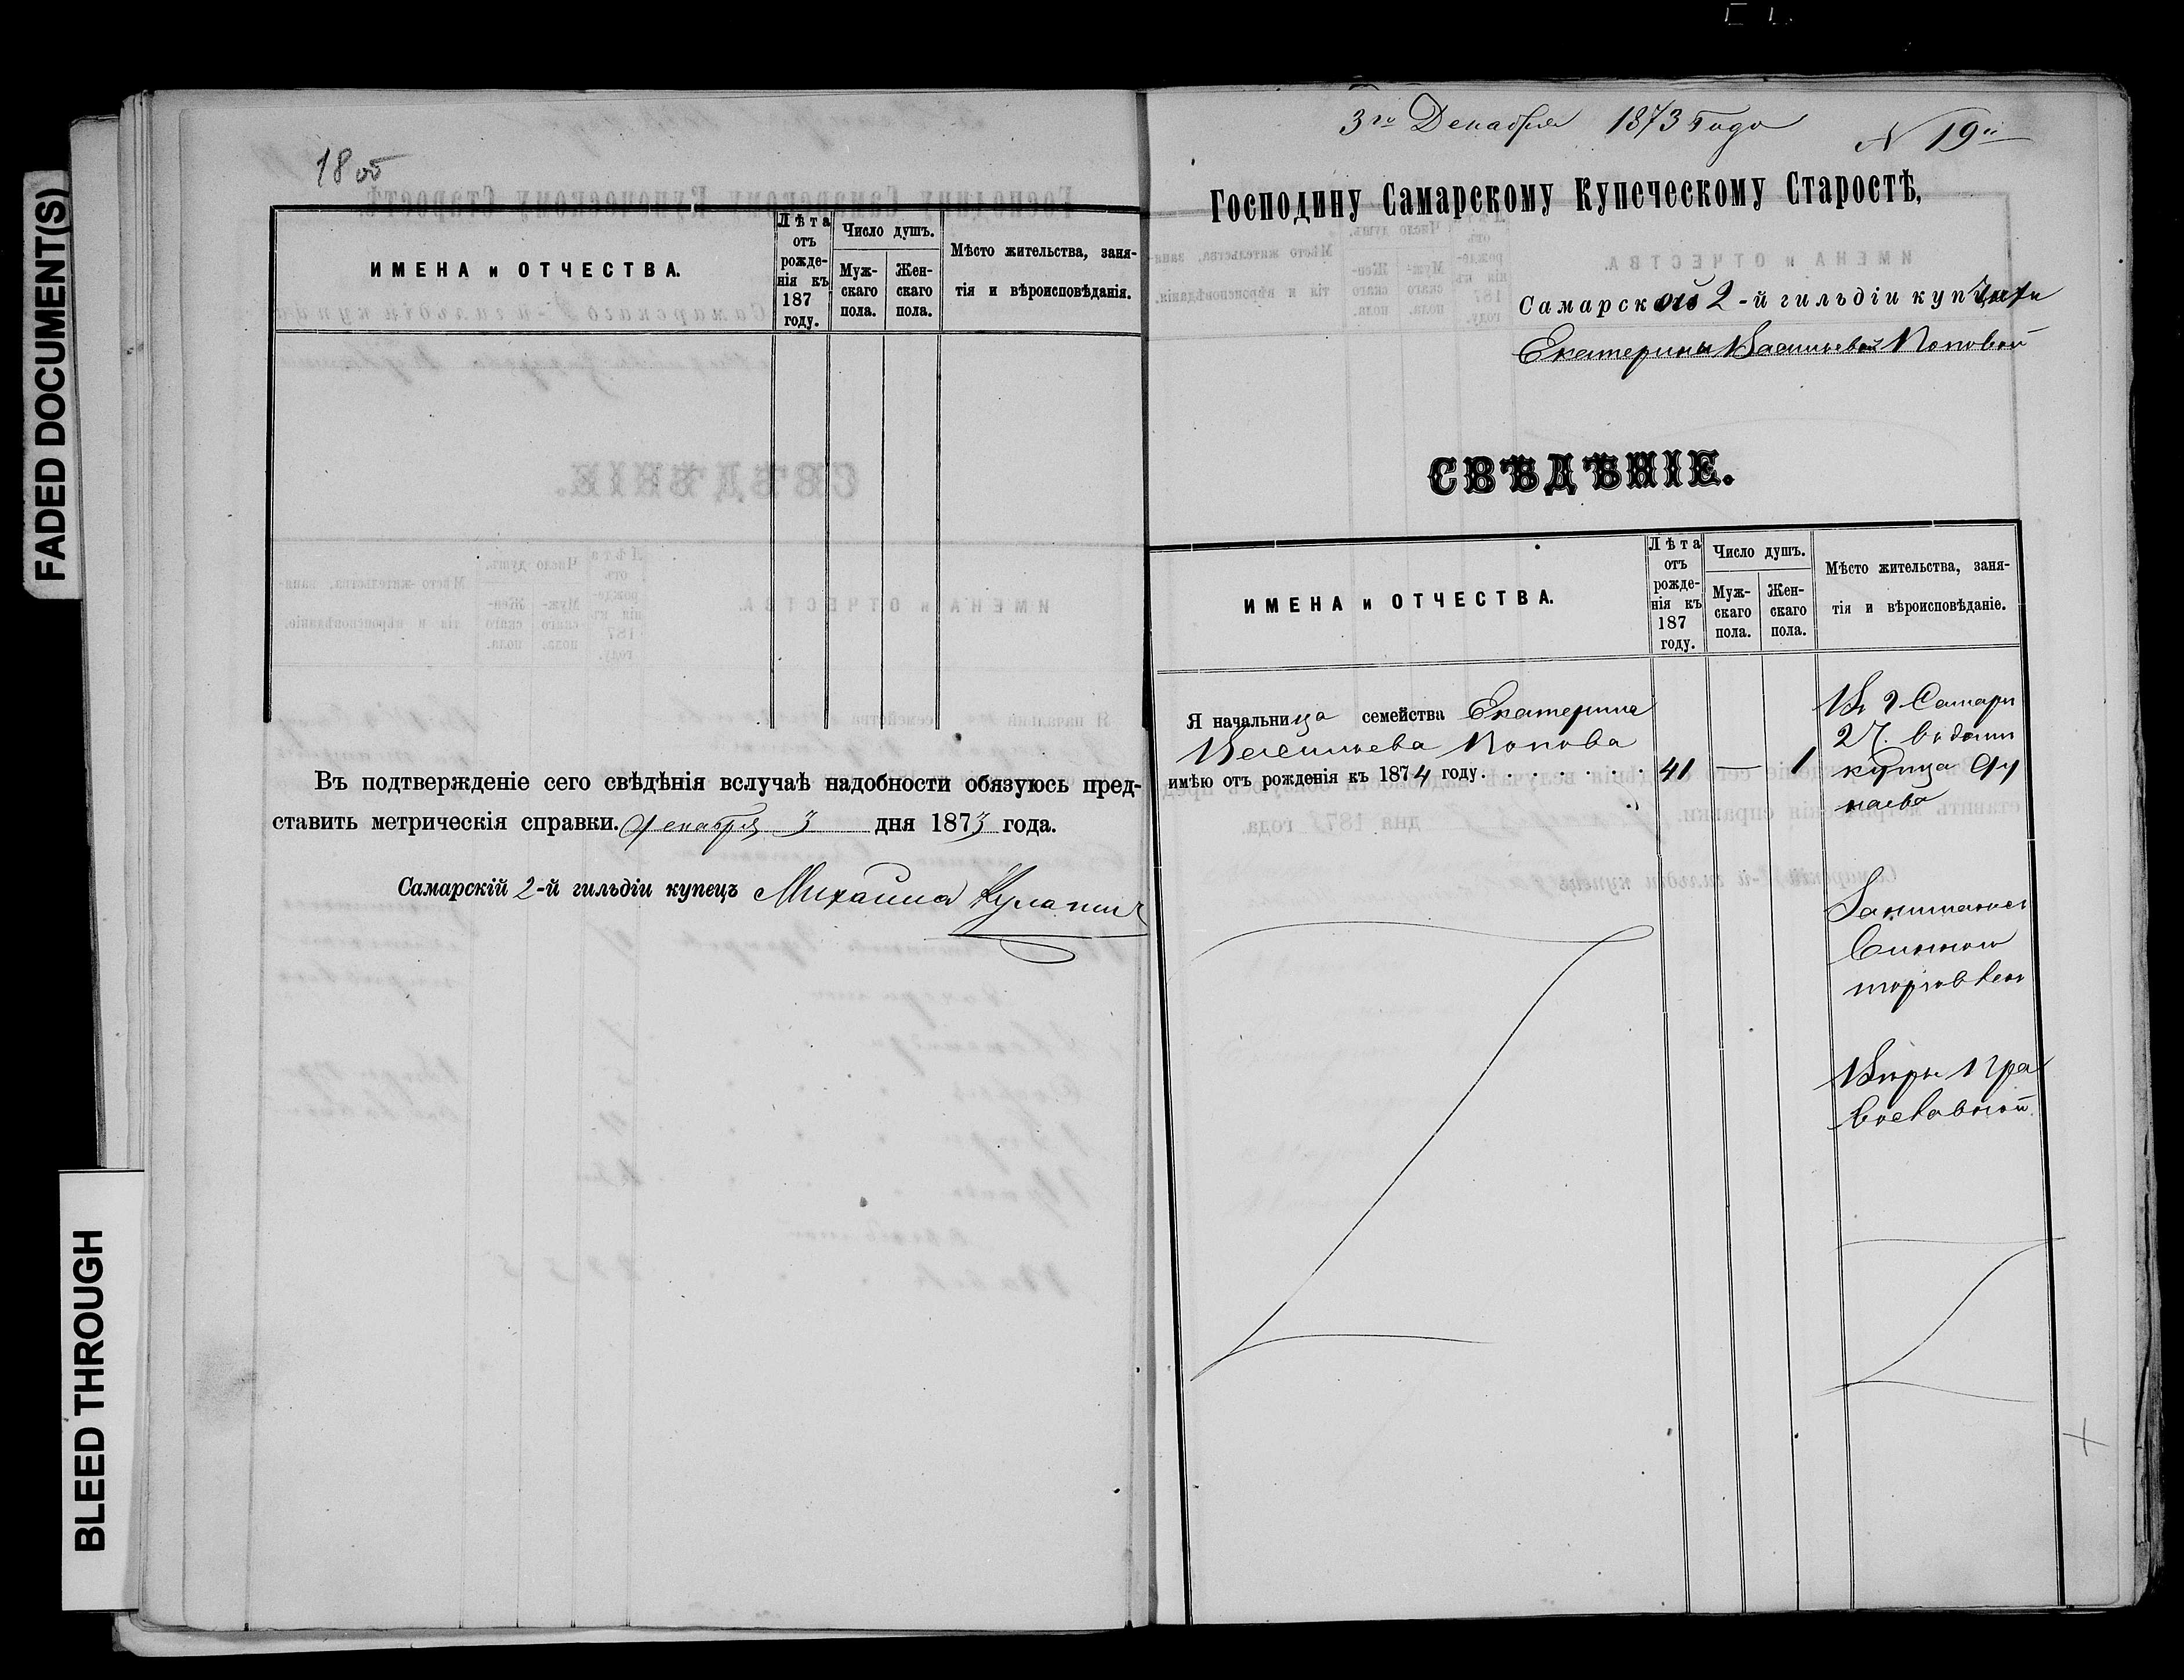 FADED DOCUMENT(S)
BLEED THROUGH
18 об
ИМЕНА и ОТЧЕСТВА.
Лѣта отъ рожде-нія къ 187 году.
Число душъ.
Муж-скаго пола.
Жен-скаго пола.
Мѣсто жительства, заня-
тія и вѣроисповѣданія.
Въ подтвержденіе сего свѣдѣнія вслучаѣ надобности обязуюсь пред-
ставить метрическія справки. Декабря 3 дня 1873 года.
Самарскій 2-й гильдіи купецъ Михаила
3го Декабря 1873 Года
N 19й
Господину Самарскому Купеческому Старостѣ,
Самарской 2-й гильдіи купчихи
Екатерины Васильевой Поповой
СВѢДѢНІЕ.
ИМЕНА и ОТЧЕСТВА.
Лѣта отъ рожде-нія къ 187 году.
Число душъ.
Муж-скаго пола.
Жен-скаго пола.
Мѣсто жительства, заня-
тія и вѣроисповѣданіе.
Я начальница семейства Екатерина
Васильева Попова
имѣю отъ рожденія къ 1874 году. . . . . . . 41 — 1
Въ г Самары
2 Ч. въ доми
купца Ду
наева
Занимаюсь
торговлею
Вѣры Пра
вославной